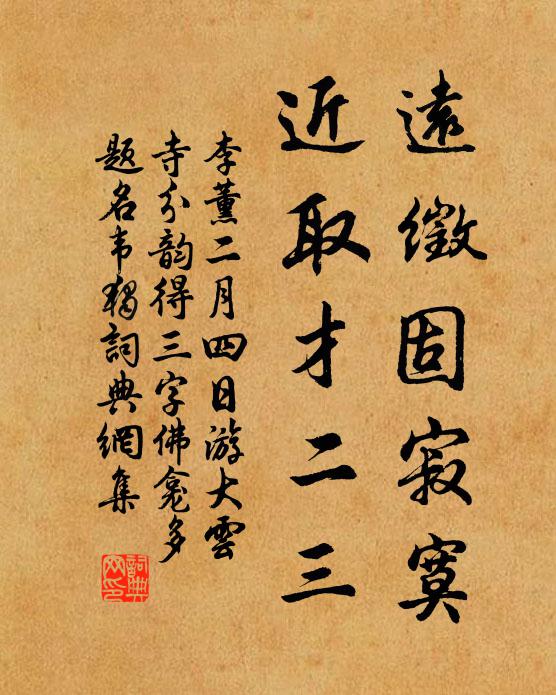 遠徵固寂寞
近取才二三
李薰二月四日游大雲
寺分韵得三字佛龛多
题名韦獨詞典網集
詞典网印